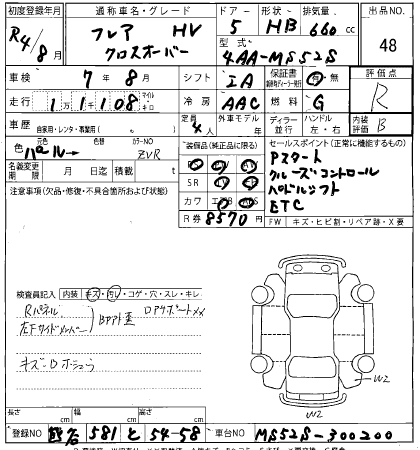 初度登録年月 通称車名・グレード ドア 形状 排気量 出品NO.
R4/8月 フレア HV クロスオーバー 5 HB 660cc 48
型式 4AA-MS52S
車検 7年8月 シフト IA 保証書 有 無 評価点
走行 1万1108 マイル キロ 冷房 AAC 燃料 G R
車歴 自家用・レンタ・事業用 定員 4人 外車モデル 年 ディーラー 並行 ハンドル 左・右 内装評価 B
色 元色 パール→ 色替 カラーNO ZVR
装備品(純正品に限る) セールスポイント(正常に機能するもの)
名義変更期限 月 日迄 積載 t
Pスタート
SR クルーズコントロール
カワ パドルシフト
ETC
R券 8570円
注意事項(欠品・修復・不具合箇所および状態)
FW キズ・ヒビ割・リペア跡・X要
検査員記入 内装 キズ・汚レ・コゲ・穴・スレ・キレ
Rパネル
左下サイドメンバー
BPアト歪
キズ・
W2
W2
長さ cm 幅 cm 高さ cm
登録NO 581 と 54-58 車台NO MS52S-300200